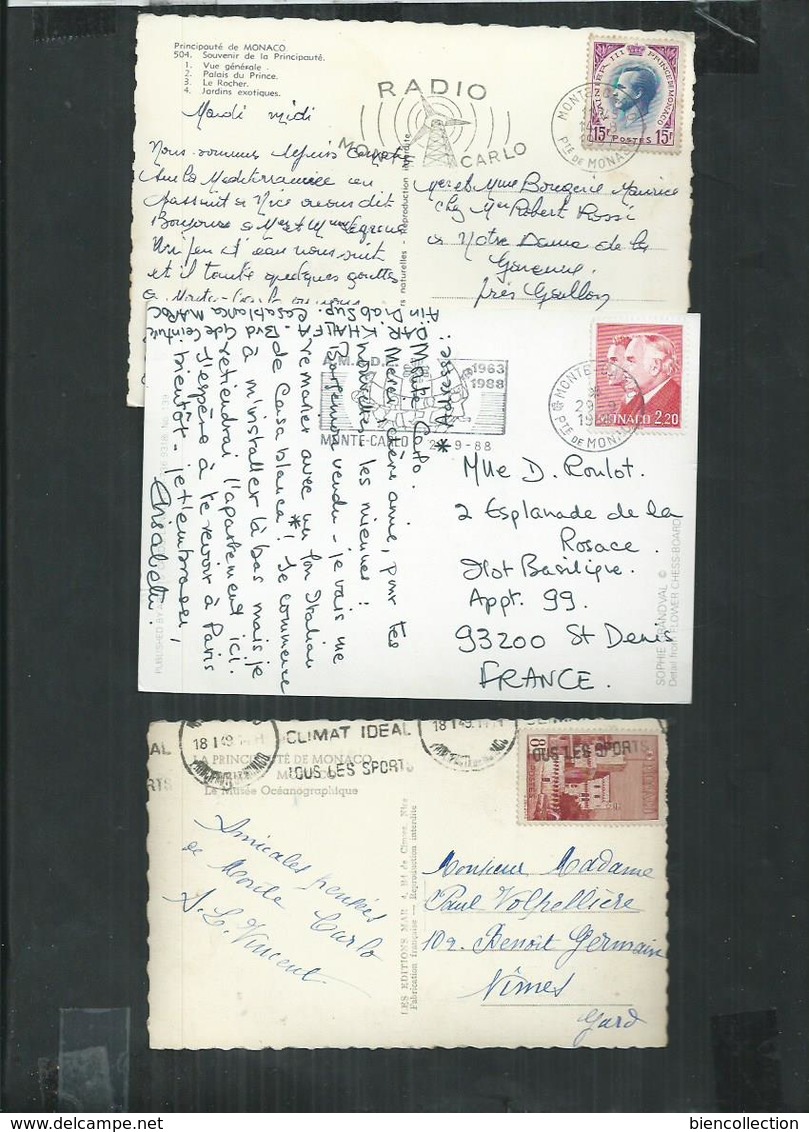 Principauté de MONACO
504. Souvenir de la Principauté.
1. Vue générale
2. Palais du Prince.
3. Le Rocher.
4. Jardins exotiques.
RADIO
MONTE CARLO
RAINIER III PRINCE DE MONACO
15F POSTES 15F
MONTE-CARLO
PTE DE MONACO
Mardi midi
Nous sommes depuis
sur la Mediterrannée en
passant a Nice avons dit
Bonjour a Mr et Mme
Un peu d'eau nous suit
et il tombe quelques gouttes
a Monte-Carlo
Mr et Mme Bougerie Maurice
chez Mr Robert Rossi
a Notre Dame de la
Garenne
près Gaillon
naturelles - Reproduction interdite
A.M.A.D.E.
1963
1988
MONTE-CARLO
2-9-88
MONTE-
PTE DE MONACO
MONACO 2,20
* Adresse:
DAR KHALFA - Bvd de Ceinture
Ain Diab Sup. Casablanca MAROC
Monte Carlo.
Merci, chère amie, pour tes
nouvelles, les miennes:
vendu - je vais me
remarier avec un fou Italien
de Casablanca *! Je commence
à m'installer là bas mais je
retiendrai l'appartement ici.
J'espère à te revoir à Paris
bientôt - je t'embrasse,
Elisabeth.
Mlle D. Roulot.
2 Esplanade de la
Rosace.
Ilot Basilique.
Appt. 99.
93200 St Denis
FRANCE.
PUBLISHED BY
SOPHIE GRANDVAL ©
Detail from FLOWER CHESS-BOARD
18 1 49
CLIMAT IDEAL
TOUS LES SPORTS
18 1 49
LA PRINCIPAUTÉ DE MONACO
MONACO
Le Musée Océanographique
Amicales pensées
de Monte Carlo
S. L. Vincent
LES EDITIONS MAR, 4, Bd de Cimiez, Nice
Fabrication française - Reproduction interdite
Monsieur Madame
Paul Volpellière
10 r. Benoît Germain
Nîmes
Gard
biencollection